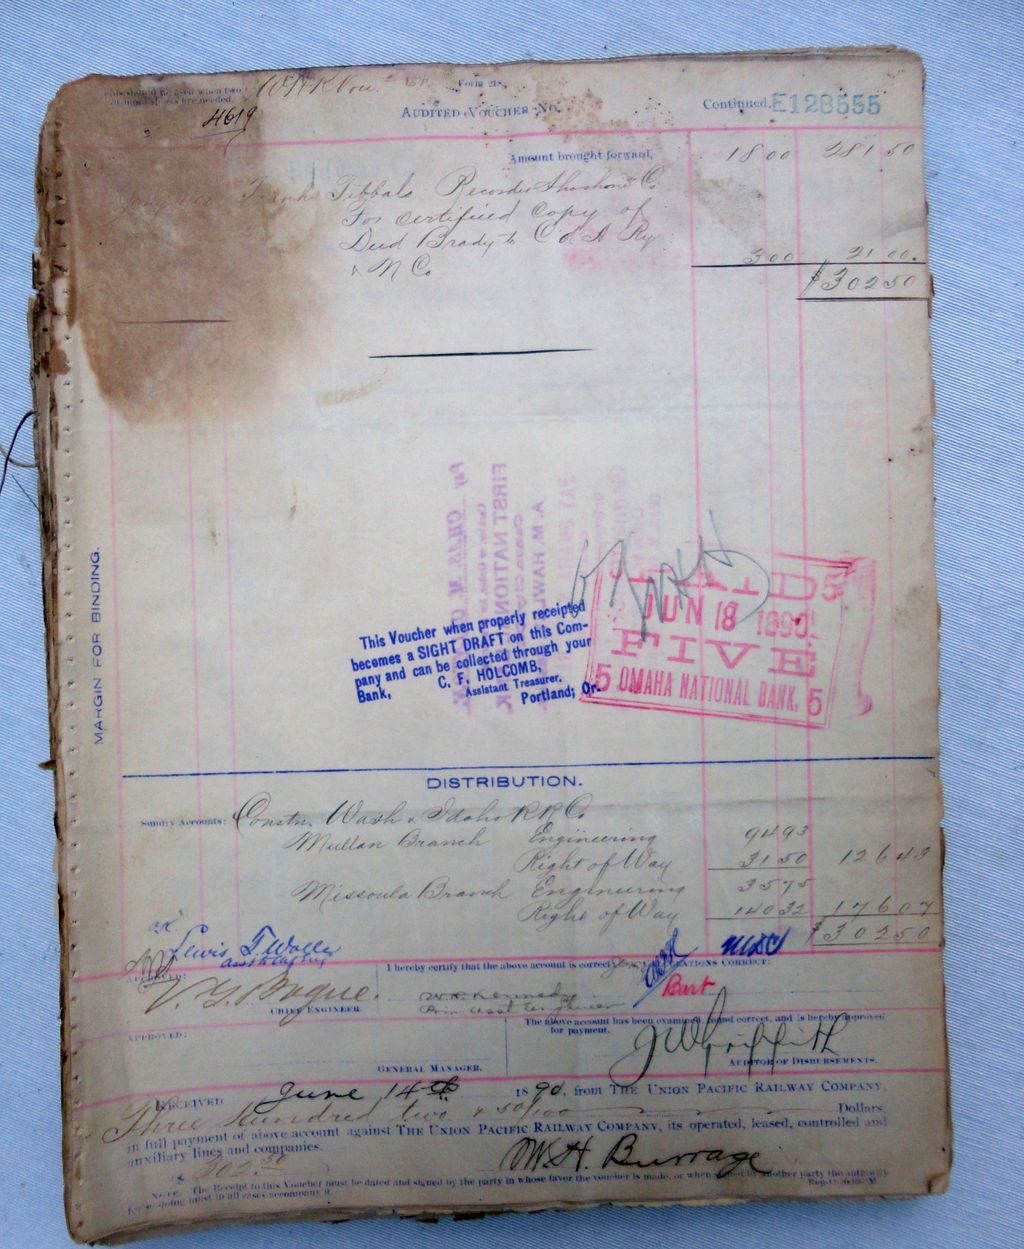 This should be used when two
or more are needed.
Form 218
4619
AUDITED VOUCHER No.
Continued. E128555
Amount brought forward, 18 00 281 50
Frank Tibbals Recorder Shoshone Co.
For certified copy of
Deed Brady to C d A Ry
& N Co 3 00 21 00.
$302 50
MARGIN FOR BINDING.
FIRST NATION
A. M. HAWL
PAID
JUN 18 1890
FIVE
5 OMAHA NATIONAL BANK, 5
This Voucher when properly receipted
becomes a SIGHT DRAFT on this Com-
pany and can be collected through your
Bank, C. F. HOLCOMB,
Assistant Treasurer.
Portland, Or.
DISTRIBUTION.
Sundry Accounts: Constn. Wash & Idaho R R Co
Mullan Branch Engineering 94 93
Right of Way 31 50 126 43
Missoula Branch Engineering 35 75
Right of Way 140 32 176 07
$302 50
Lewis
APPROVED:
I hereby certify that the above account is correct
CORRECT:
V. G. Bogue.
CHIEF ENGINEER.
W. R. Kennedy
Prin Asst Engineer
Burt
The above account has been examined, found correct, and is hereby approved
for payment.
J W Griffith
AUDITOR OF DISBURSEMENTS.
APPROVED:
GENERAL MANAGER.
RECEIVED June 14th 1890, from THE UNION PACIFIC RAILWAY COMPANY
Three Hundred two & 50/100 Dollars,
in full payment of above account against THE UNION PACIFIC RAILWAY COMPANY, its operated, leased, controlled and
auxiliary lines and companies.
$302.50
W. H. Burrage
NOTE. The Receipt to this Voucher must be dated and signed by the party in whose favor the voucher is made, or when signed by another party the authority
for so doing must in all cases accompany it.